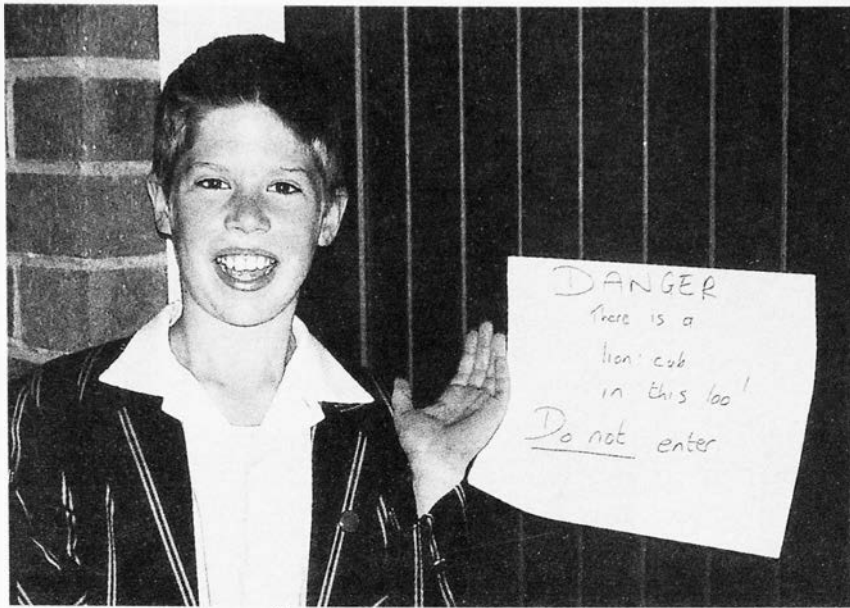 DANGER
There is a
lion cub
in this loo!
Do not enter